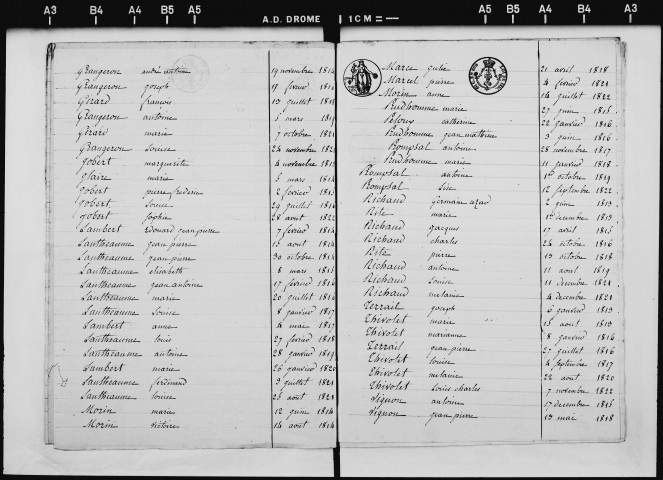 A3 B4 A4 B5 A5 A.D. DROME 1 CM A5 B5 A4 B4 A3
Grangeron andré antoine 19 novembre 1814
Grangeron joseph 17 fevrier 1816
Gerard françois 13 juillet 1818
Grangeron antoine 5 mars 1819
Gerard marie 7 octobre 1821
Grangeron louise 24 novembre 1821
Gobert marguerite 4 novembre 1813
Glaire marie 5 mars 1814
Gobert pierre frederic 2 fevrier 1815
Gobert louise 29 juillet 1816
Gobert sophie 28 aout 1822
Lambert edouard jean pierre 7 fevrier 1814
Lantheaume jean pierre 15 aout 1814
Lantheaume jean pierre 30 octobre 1814
Lantheaume elisabeth 8 mars 1815
Lantheaume jean antoine 17 fevrier 1816
Lantheaume marie 20 juillet 1816
Lantheaume louise 8 janvier 1817
Lambert anne 4 mai 1817
Lantheaume louis 27 fevrier 1818
Lantheaume antoine 28 janvier 1819
Lambert marie 26 janvier 1820
Lantheaume ferdinand 3 juillet 1821
Lantheaume louise 25 aout 1821
Morin marie 12 juin 1814
Morin victoire 14 aout 1814
Marce julie 21 avril 1818
Marcel pierre 4 fevrier 1821
Morin anne 14 juillet 1822
Prudhomme marie 27 juin 1815
catherine 22 janvier 1816
Prudhomme jean mathieu 3 juin 1816
Rompsal antoine 28 novembre 1817
Prudhomme marie 11 janvier 1818
Rompsal antoine 1er octobre 1819
Rompsal lise 12 septembre 1822
Richaud germain 2 juin 1813
Rite marie 1er decembre 1813
Richaud jacques 17 avril 1815
Richaud charles 26 octobre 1816
Rite pierre 13 octobre 1818
Richaud antoine 11 avril 1819
Richaud louise 11 decembre 1821
Richaud melanie 4 decembre 1821
Terrail joseph 6 janvier 1813
Thivolet marie 15 aout 1813
Thivolet marianne 8 janvier 1816
Terrail jean pierre 27 juillet 1816
Thivolet louise 4 septembre 1817
Thivolet melanie 22 aout 1820
Thivolet louis charles 7 novembre 1822
Vignon antoine 17 decembre 1815
Vignon jean pierre 13 mai 1818